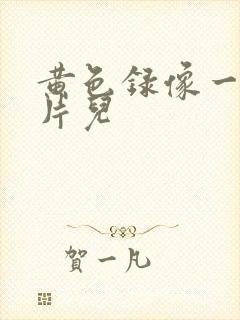 黄色录像一
片儿
賀一凡